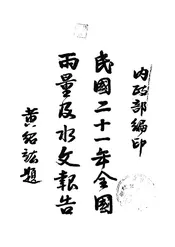 內政部編印
民國二十一年全國
雨量及水文報告
黃紹竑題